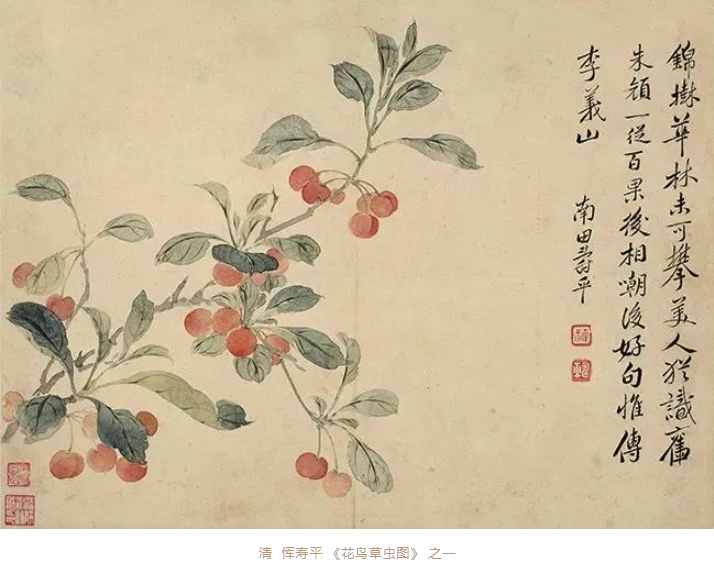 錦樹華林未可攀美人猶識舊
朱顏一從百果後相嘲後好句惟傳
李義山
南田壽平
清 恽寿平 《花鸟草虫图》 之一